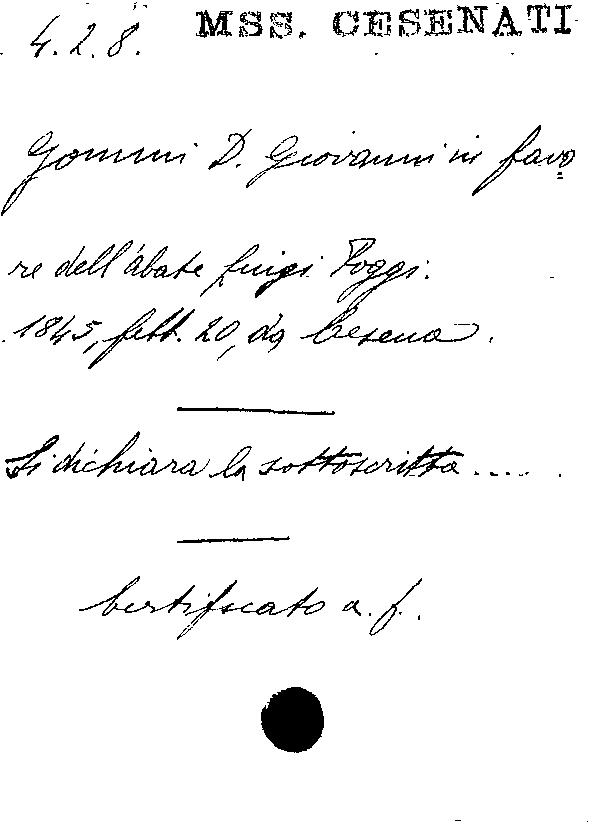 4.2.8. MSS. CESENATI
Gommi D. Giovanni in favo=
re dell'abate Luigi Poggi.
1845, febb. 20, da Cesena.
Si dichiara la sottoscritta.....
Certificato a. f.